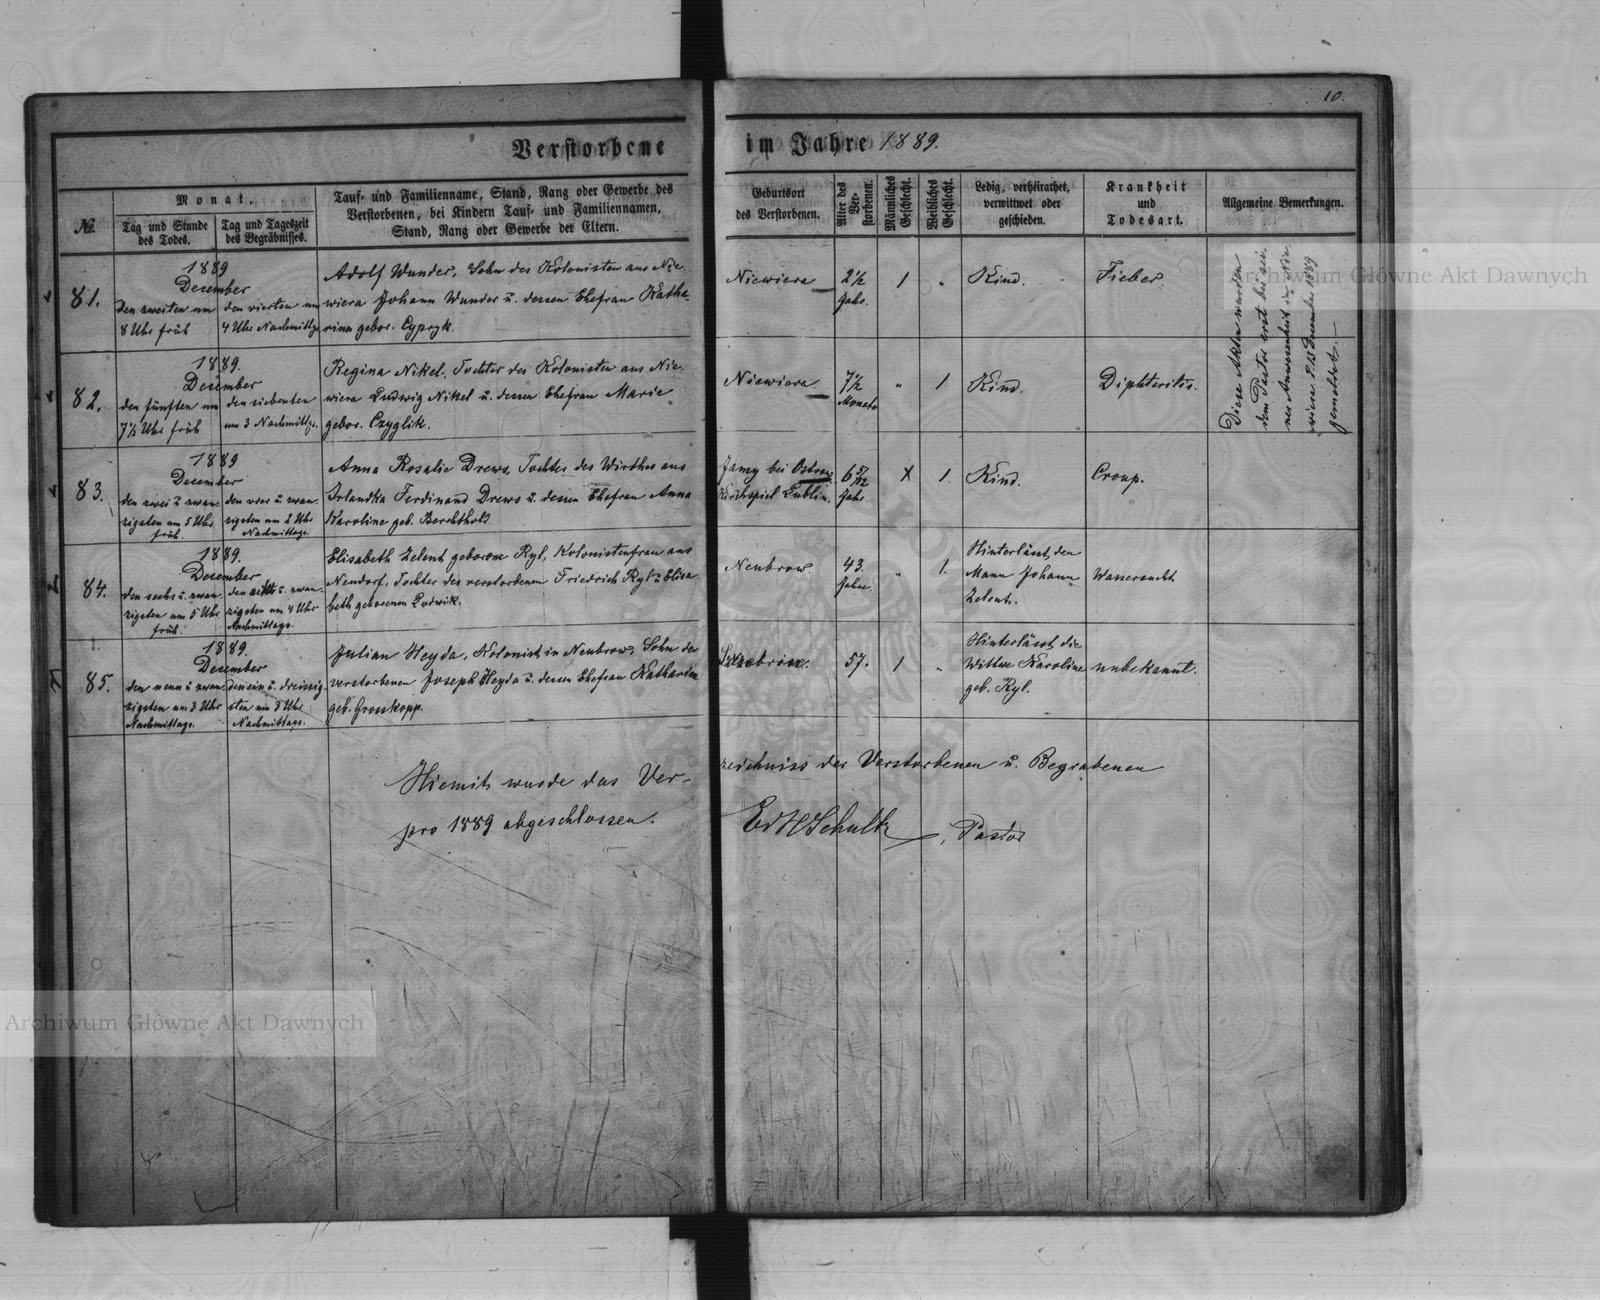 10.
Verstorbene im Jahre 1889.
No.
Monat,
Tag und Stunde
des Todes.
Tag und Tageszeit
des Begräbnisses.
Tauf- und Familienname, Stand, Rang oder Gewerbe des
Verstorbenen, bei Kindern Tauf- und Familiennamen,
Stand, Rang oder Gewerbe der Eltern.
Geburtsort
des Verstorbenen.
Alter des
Ver-
storbenen.
Männliches
Geschlecht.
Weibliches
Geschlecht.
Ledig, verheirathet,
verwittwet oder
geschieden.
Krankheit
und
Todesart.
Allgemeine Bemerkungen.
81.
1889
December
den zweiten um
8 Uhr früh
den vierten um
4 Uhr Nachmittgs
Adolf Wunder, Sohn des Kolonisten aus Nie-
wiera Johann Wunder u. dessen Ehefrau Katha-
rina gebor. Cypryk.
Niewiera
2½
Jahr.
1
"
Kind.
Fieber.
82.
1889.
December
den fünften um
7½ Uhr früh
den siebenten
um 3 Nachmittgs.
Regina Nikel, Tochter des Kolonisten aus Nie-
wiera Ludwig Nikel u. dessen Ehefrau Marie
gebor. Czyglik.
Niewiera
7½
Monate
"
1
Kind.
Diphteritis.
Diese Akten wurden
dem Pastor erst bei sei-
ner Anwesenheit in Nie-
wiera d. 18 December 1889
gemeldet.
83.
1889
December
den zwei u. zwan-
zigsten um 5 Uhr
früh.
den vier u. zwan-
zigsten um 2 Uhr
Nachmittags.
Anna Rosalie Drews, Tochter des Wirthes aus
Irlandka Ferdinand Drews u. dessen Ehefrau Anna
Karoline geb. Berchthold
Jamy bei
Kirchspiel Lublin.
6 5/12
Jahr.
X
1.
Kind.
Croup.
84.
1889.
December
den sechs u. zwan-
zigsten um 5 Uhr
früh.
den acht u. zwan-
zigsten um 4 Uhr
Nachmittags.
Elisabeth Zelent geborene Ryl, Kolonistenfrau aus
Neudorf, Tochter des verstorbenen Friedrich Ryl u. Elisa-
beth geborenen Ludwik.
Neubrow
43.
Jahre
"
1.
Hinterlässt den
Mann Johann
Zelent.
Wassersucht
85.
1889.
December
den neun u. zwan-
zigsten um 3 Uhr
Nachmittags.
den ein u. dreissig-
sten um 3 Uhr
Nachmittags.
Julian Heyda, Kolonist in Neubrow, Sohn des
verstorbenen Joseph Heyda u. dessen Ehefrau Katharine
geb. Grosskopp.
57.
1
"
Hinterlässt die
Wittwe Karoline
geb. Ryl.
unbekannt.
Hiemit wurde das Ver-
zeichniss der Verstorbenen u. Begrabenen
pro 1889 abgeschlossen.
Ed H Schultz, Pastor
Archiwum Główne Akt Dawnych
Archiwum Główne Akt Dawnych